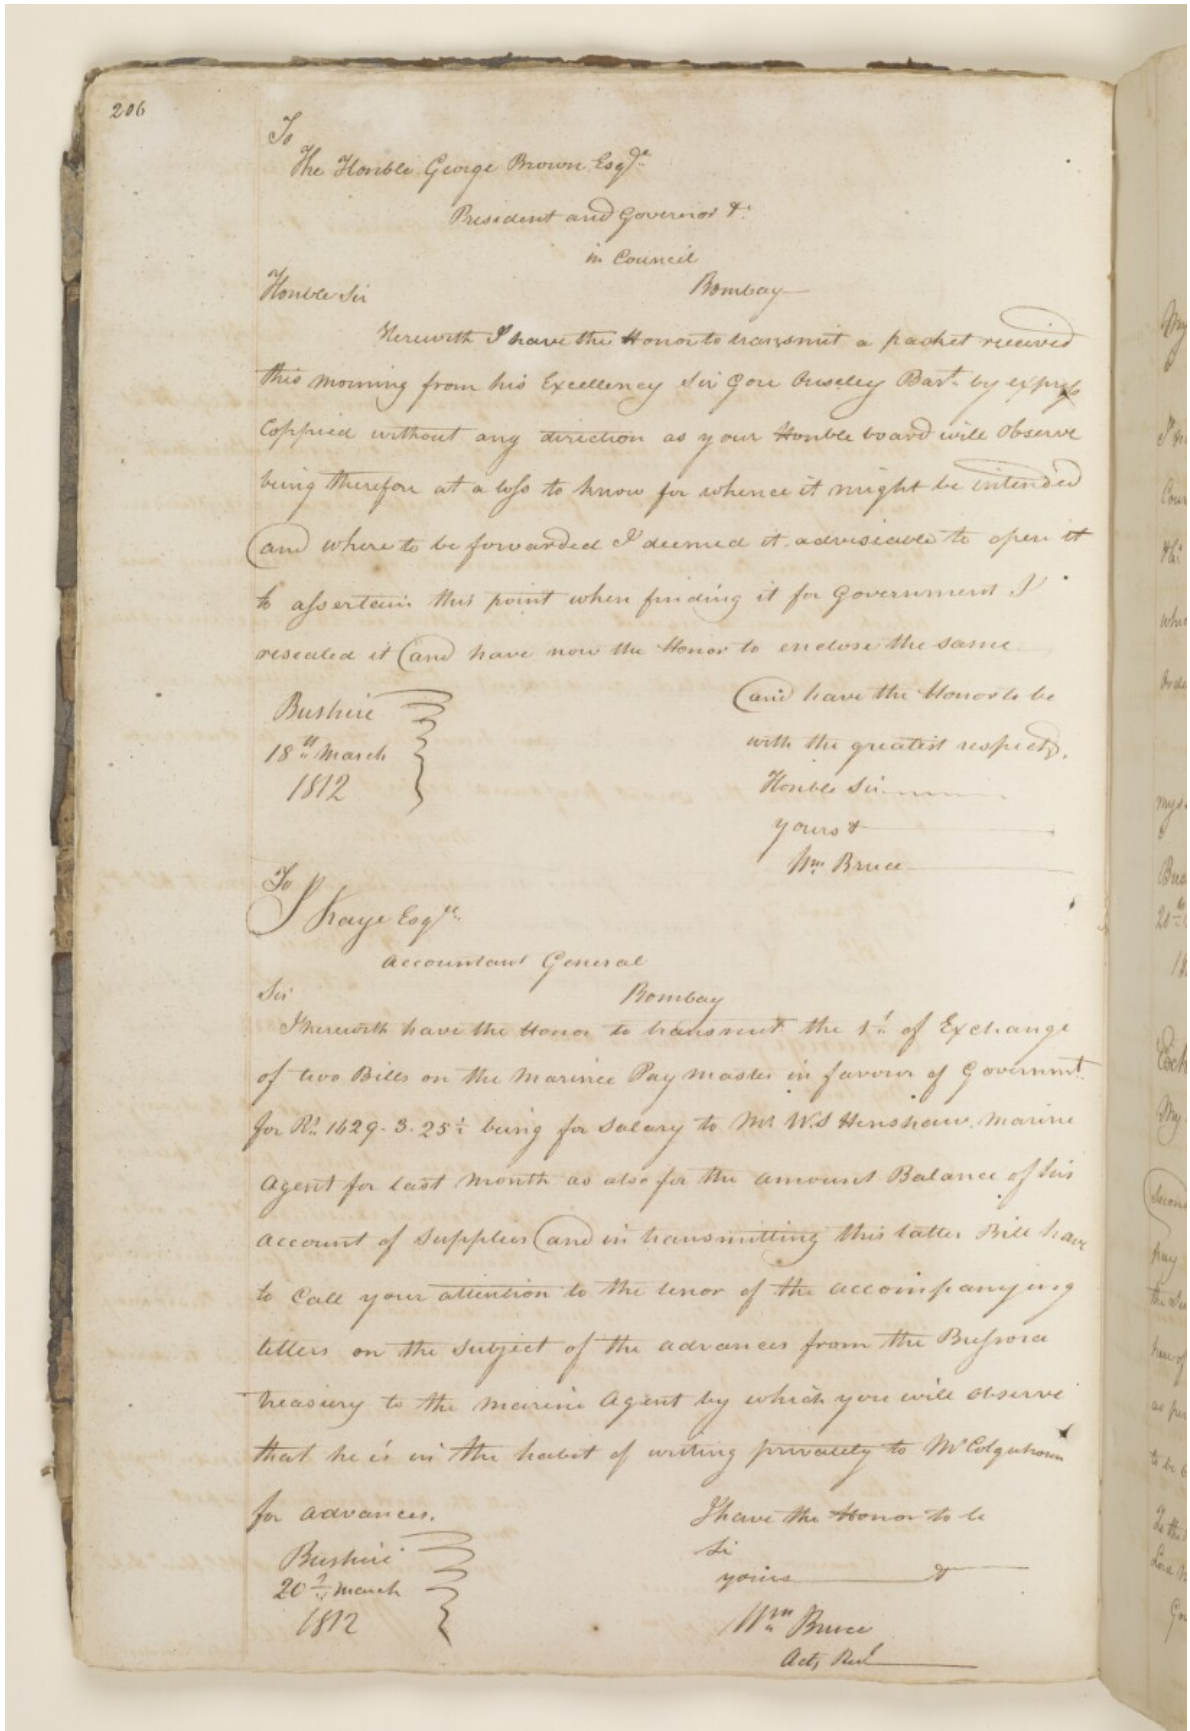 206
To
The Honble George Brown Esqre
President and Governor &c
in Council
Honble Sir
Bombay
Herewith I have the Honor to transmit a packet received
this morning from his Excellency Sir Gore Ouseley Bart. by express
Coppied without any direction as your Honble board will observe
being therefore at a loss to know for whence it might be intended
and where to be forwarded I deemed it adviseable to open it
to assertain this point when finding it for Government I
resealed it and have now the Honor to enclose the same
and have the Honor to be
with the greatest respect,
Honble Sir
yours &
Wm Bruce
Bushire
18th March
1812
To
Kaye Esqre
Accountant General
Sir
Bombay
I herewith have the Honor to transmit the 1st of Exchange
of two Bills on the Marine Pay Master in favour of Governmt
for Rs 1629. 3. 25 being for Salary to Mr W.S Henshaw. Marine
Agent for last Month as also for the amount Balance of his
account of Supplies and in transmitting this latter Bill have
to Call your attention to the tenor of the accompanying
letters on the Subject of the advances from the Bussora
treasury to the Marine Agent by which you will observe
that he is in the habit of writing privately to Mr Colquhoun
for advances.
I have the Honor to be
Sir
yours &
Wm Bruce
Actg Rest
Bushire
20th March
1812
My